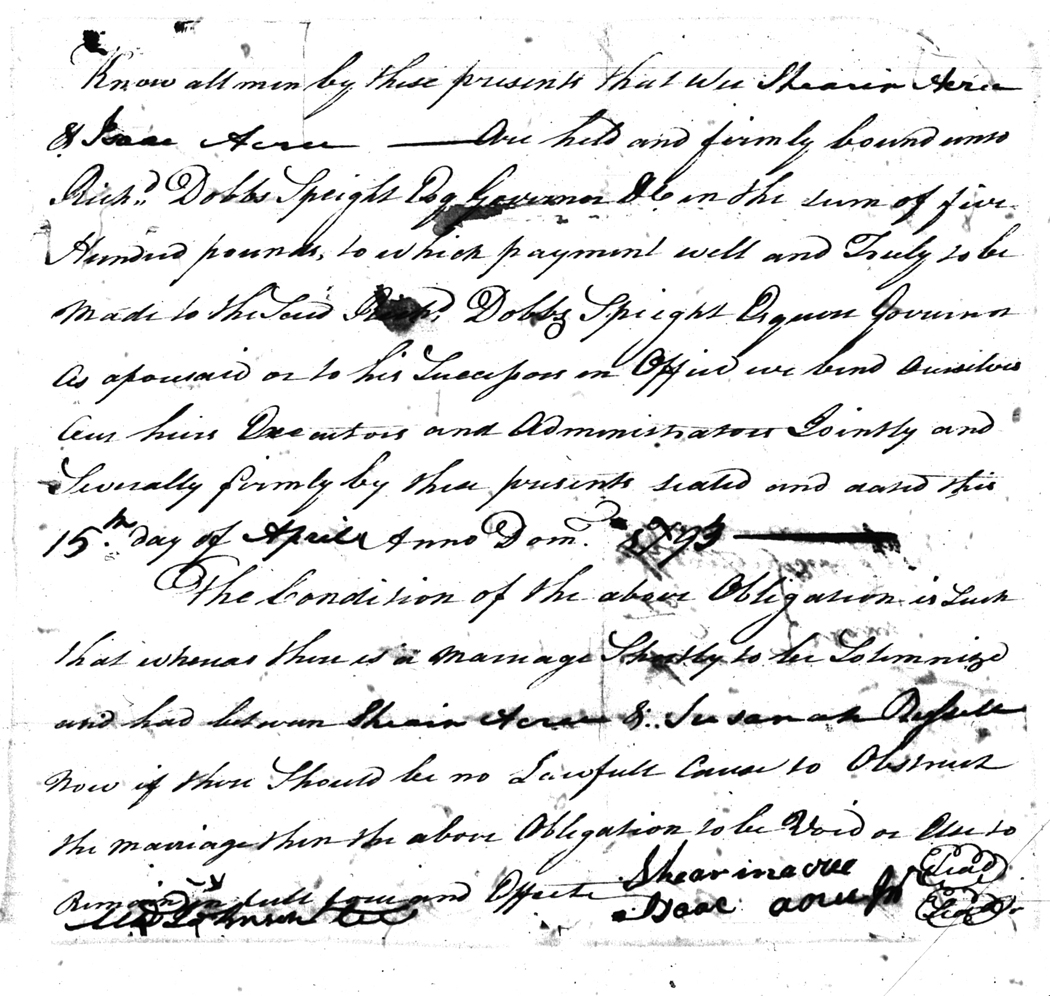 Know all men by these presents that wee Shearin Acree
& Isaac Acree — Are held and firmly bound unto
Rich.d Dobbs Speight Esq Governor &c in the sum of five
Hundred pounds, to which payment well and Truly to be
Made to the Said Rich.d Dobbs Speight Esquire Governor
as aforesaid or to his Successors in Office we bind ourselves
our heirs Executors and Administrators Jointly and
Severally firmly by these presents sealed and dated this
15.th day of April Anno Dom. 1793
The Condition of the above Obligation is Such
that whereas there is a marriage Shortly to be Solemnized
and had between Shearin Acree & Susanah Russell
Now if there Should be no Lawfull Cause to Obstruct
the marriage then the above Obligation to be Void or Else to
Remain in full force and Effect Shearin acree Seal
Johnson Isaac acree Jr Seal